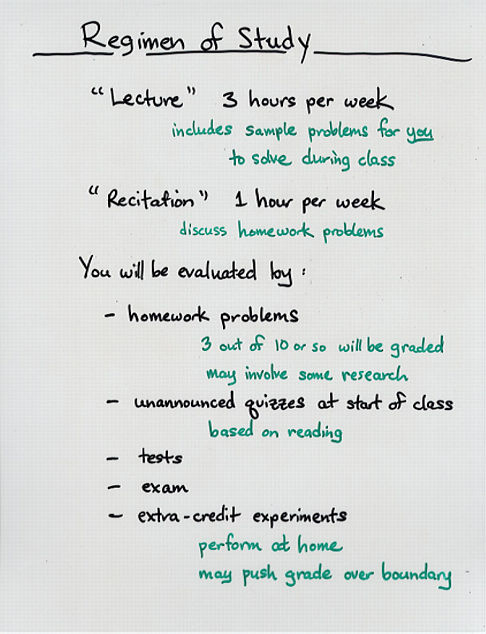 Regimen of Study
"Lecture" 3 hours per week
includes sample problems for you
to solve during class
"Recitation" 1 hour per week
discuss homework problems
You will be evaluated by :
- homework problems
3 out of 10 or so will be graded
may involve some research
- unannounced quizzes at start of class
based on reading
- tests
- exam
- extra-credit experiments
perform at home
may push grade over boundary